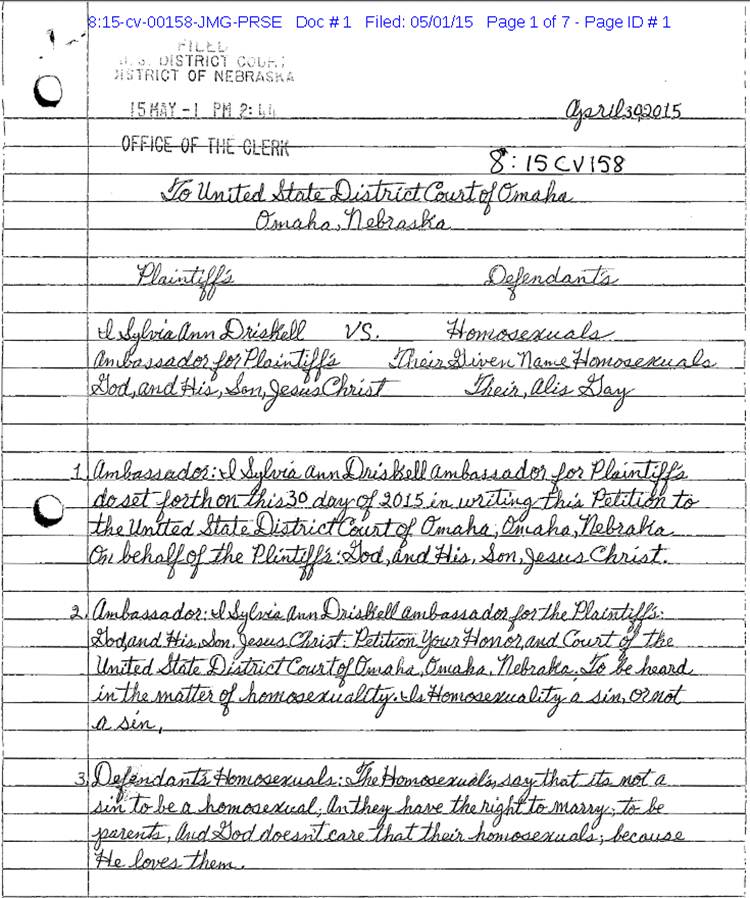 8:15-cv-00158-JMG-PRSE Doc # 1 Filed: 05/01/15 Page 1 of 7 - Page ID # 1
FILED
U.S. DISTRICT COURT
DISTRICT OF NEBRASKA
15 MAY -1 PM 2:44
OFFICE OF THE CLERK
April 30, 2015
8:15CV158
To United State District Court of Omaha
Omaha, Nebraska
Plaintiff's Defendant's
I Sylvia Ann Driskell VS. Homosexuals
Ambassador for Plaintiff's Their Given Name Homosexuals
God, and His, Son, Jesus Christ Their, Alis Gay
1. Ambassador: I Sylvia Ann Driskell ambassador for Plaintiff's
do set forth on this 30 day of 2015 in writing this Petition to
the United State District Court of Omaha, Omaha, Nebraka
On behalf of the Plintiff's: God, and His, Son, Jesus Christ.
2. Ambassador: I Sylvia Ann Driskell ambassador for the Plaintiff's:
God, and His, Son, Jesus Christ. Petition Your Honor, and Court of the
United State District Court of Omaha, Omaha, Nebraka. To be heard
in the matter of homosexuality. Is Homosexuality a sin, or not
a sin,
3. Defendant's Homosexuals: The Homosexual's, say that its not a
sin to be a homosexual; An they have the right to marry; to be
parents, And God doesn't care that their homosexuals; because
He loves them.